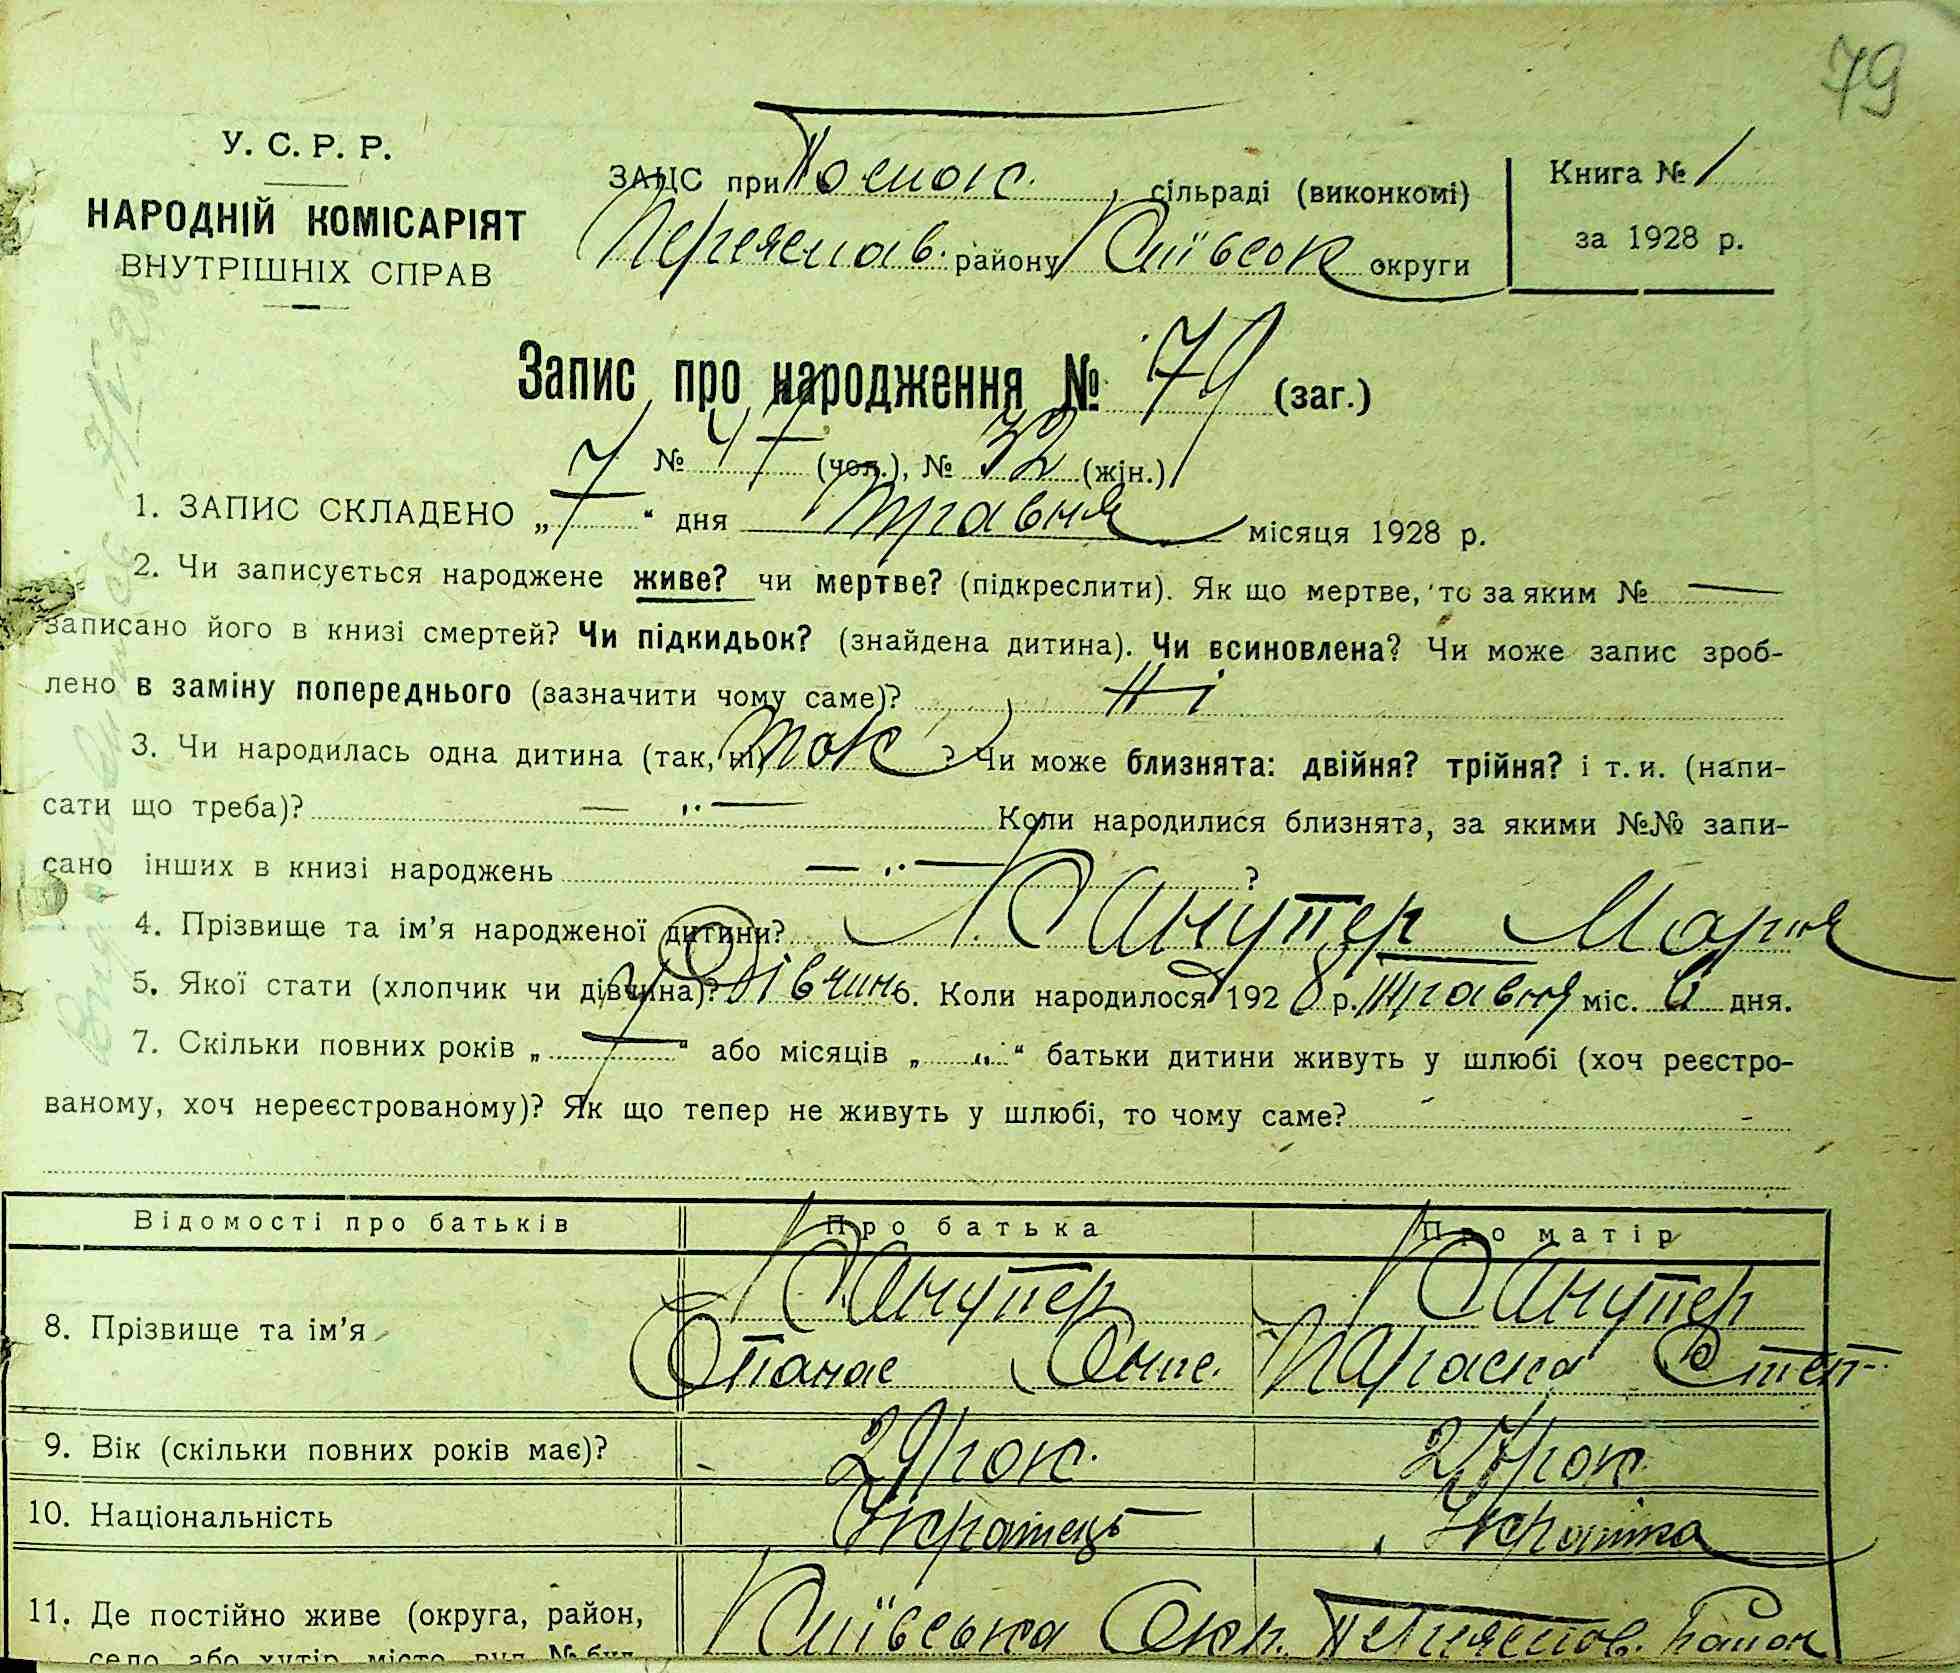 79
У. С. Р. Р.
НАРОДНІЙ КОМІСАРІЯТ
ВНУТРІШНІХ СПРАВ
ЗАЦС при сільраді (виконкомі)
Переяслав. району Київськ округи
Книга № 1
за 1928 р.
Запис про народження № 79 (заг.)
№ 47 (чол.), № 32 (жін.)
1. ЗАПИС СКЛАДЕНО „ 7 “ дня Травня місяця 1928 р.
2. Чи записується народжене живе? чи мертве? (підкреслити). Як що мертве, то за яким № —
записано його в книзі смертей? Чи підкидьок? (знайдена дитина). Чи всиновлена? Чи може запис зроб-
лено в заміну попереднього (зазначити чому саме)? Ні
3. Чи народилась одна дитина (так, ні) так ? Чи може близнята: двійня? трійня? і т. и. (напи-
сати що треба)? — „ — Коли народилися близнята, за якими №№ запи-
сано інших в книзі народжень — „ — ?
4. Прізвище та ім’я народженої дитини? Канупер Мария
5. Якої стати (хлопчик чи дівчина)? Дівчин 6. Коли народилося 1928 р. Травня міс. 6 дня.
7. Скільки повних років „ 7 “ або місяців „ „ “ батьки дитини живуть у шлюбі (хоч реєстро-
ваному, хоч нереєстрованому)? Як що тепер не живуть у шлюбі, то чому саме? -
Відомості про батьків Про батька Про матір
8. Прізвище та ім’я Канупер Канупер
Опанас Онис. Параска Степ.
9. Вік (скільки повних років має)? 29 рок. 27 рок.
10. Національність Украінець Украінка
11. Де постійно живе (округа, район, Київська Окр. Переяслов. Район
село або хутір, місто, вул. № буд.